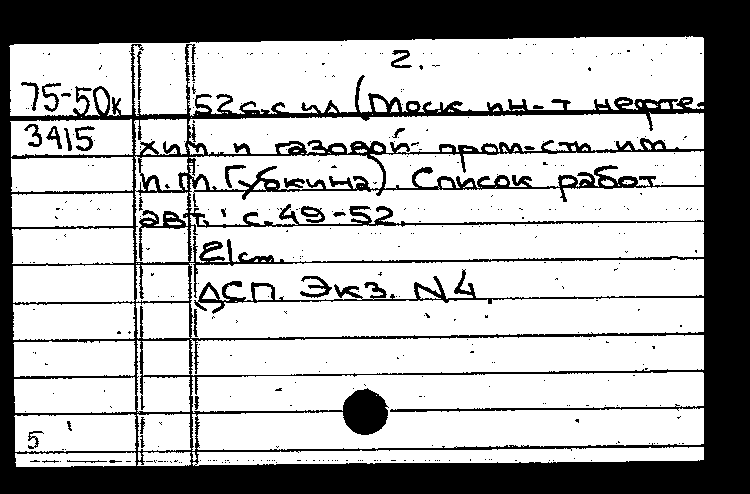 2.
75-50к 52 с. с ил (Моск ин-т нефте-
3415 хим. и газовой пром-сти им.
И. М. Губкина). Список работ
авт.: с. 49-52.
21 см.
ДСП. Экз. N 4.
5